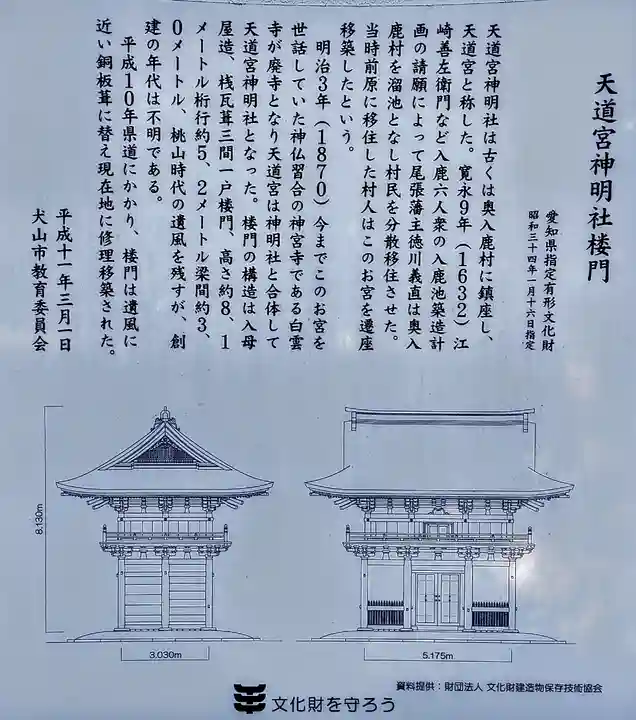 天道宮神明社楼門
愛知県指定有形文化財
昭和三十四年一月十六日指定
天道宮神明社は古くは奥入鹿村に鎮座し、
天道宮と称した。寛永9年（1632）江
崎善左衛門など入鹿六人衆の入鹿池築造計
画の請願によって尾張藩主徳川義直は奥入
鹿村を溜池となし村民を分散移住させた。
当時前原に移住した村人はこのお宮を遷座
移築したという。
明治3年（1870）今までこのお宮を
世話していた神仏習合の神宮寺である白雲
寺が廃寺となり天道宮は神明社と合体して
天道宮神明社となった。楼門の構造は入母
屋造、桟瓦葺三間一戸楼門、高さ約8、1
メートル桁行約5、2メートル梁間約3、
0メートル、桃山時代の遺風を残すが、創
建の年代は不明である。
平成10年県道にかかり、楼門は遺風に
近い銅板葺に替え現在地に修理移築された。
平成十一年三月一日
犬山市教育委員会
8.130m
3.030m
5.175m
資料提供：財団法人 文化財建造物保存技術協会
文化財を守ろう